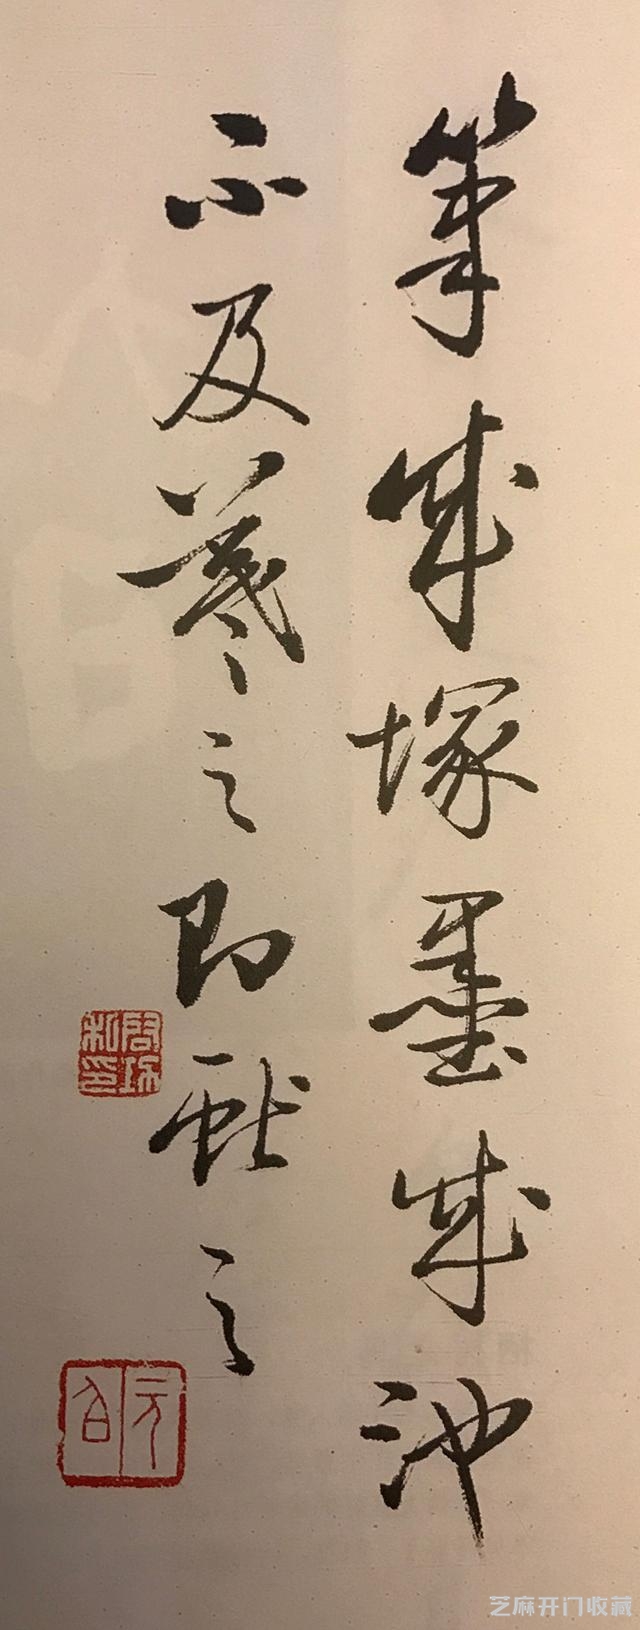 筆成塚墨成池
不及羲之即獻之
启功私印
元白
芝麻开门收藏